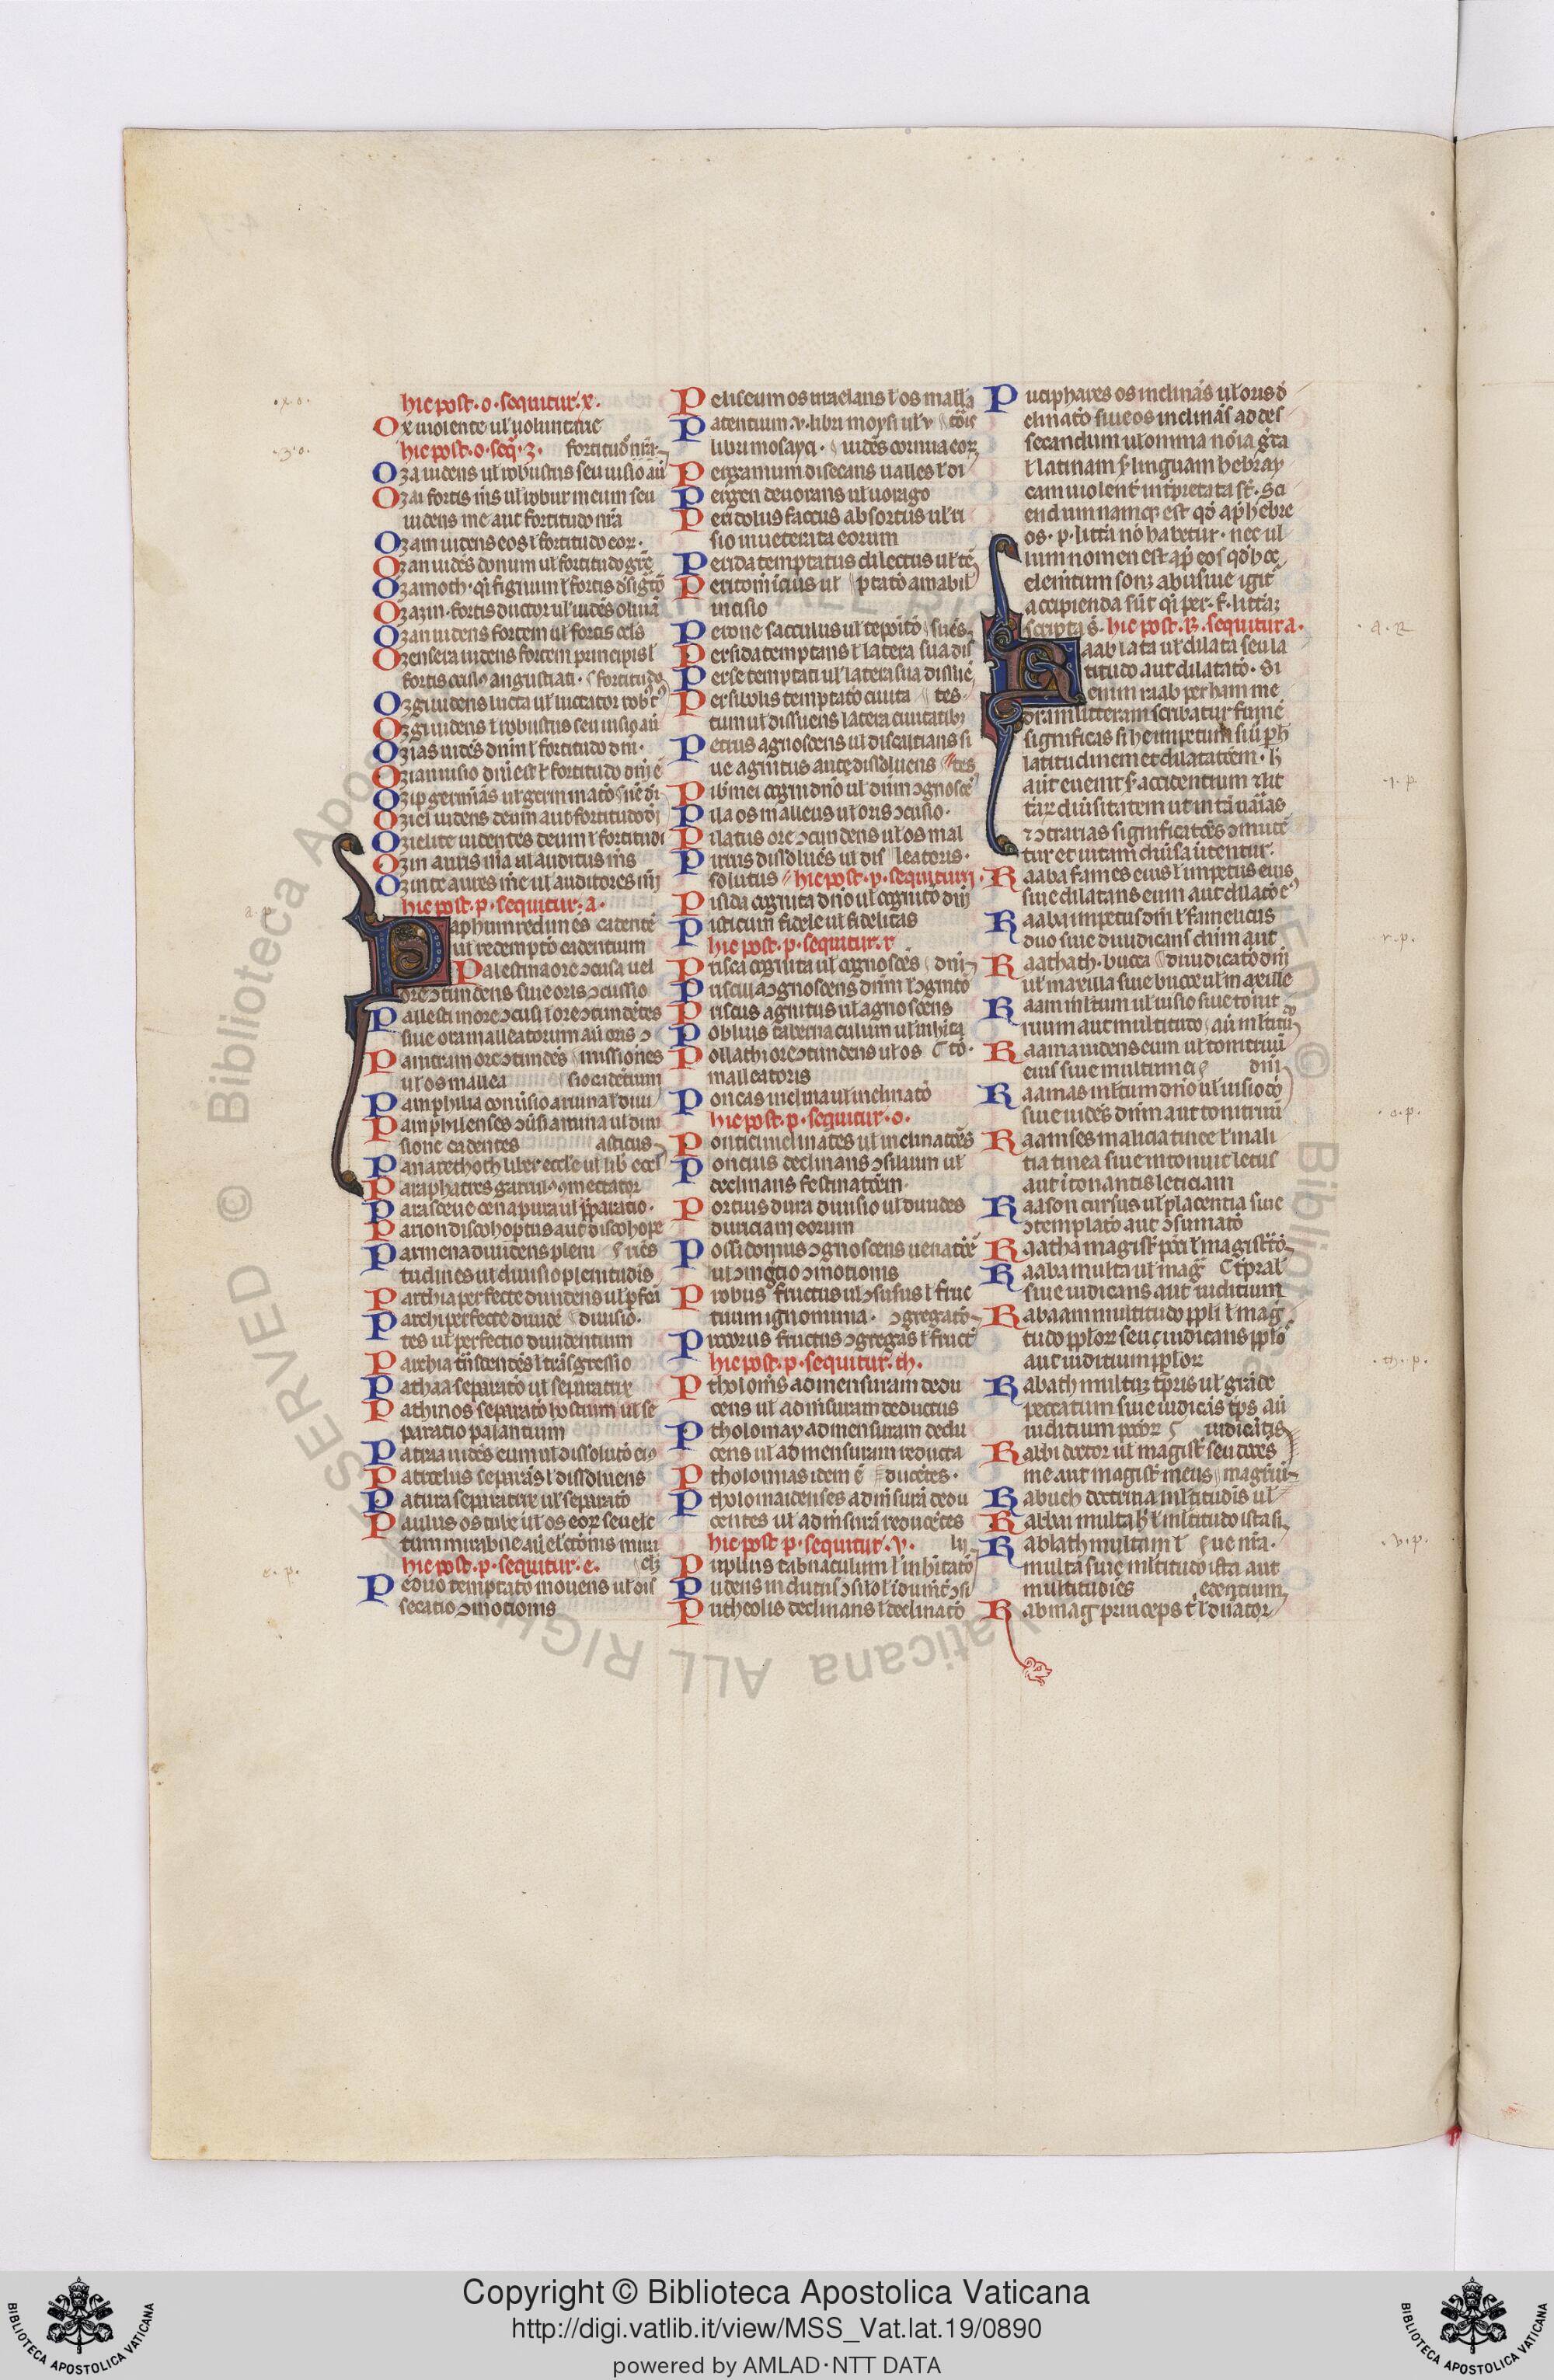 hic post · o · sequitur · x ·
Ox uiolente ul' uoluntarie
hic post · o · seq̄ · z · fortitudo nr̄a
Oza uidens ul' robustus seu uisio aū
Ozai fortis m̄s ul' robur meum seu
uidens me aut fortitudo nr̄a
Ozam uidens eos ł fortitudo eor ·
Ozan uidēs donum ul' fortitudo
Ozamoth · ł fortis
Ozazin · fortis ductor ul' uidēs oliuā
Ozan uidens fortem ul' fortis
Ozensera uidens fortem principis ł
fortis angustiati · fortitudo
Ozgi uidens lucta ul' luctator
Ozgi uidens ł robustus seu uisio aū
Ozias uidēs dn̄m ł fortitudo dn̄i ·
Oziau uisio dn̄i est ł fortitudo dn̄i ē
Ozip germināns ul' germinatō
Oziel uidens deum aut fortitudo
Ozielite uidentes deum ł fortitudi
Ozin auris m̄a ul' auditus m̄s
Ozinte aures m̄e ul' auditores m̄i
hic post · p · sequitur · a ·
Paphum redimens cadentē
ul' redemptō cadentium
Palestina ore ɔcusa uel
ore ɔtundens siue oris ɔcussio
Palestini ore ɔcusi ł ore ɔtundētes
siue ora malleatorum aū oris ɔ
Panitum ore ɔtundēs missiones
ul' os mallea sio cadētium
Pamphilia
Pamphilenses
sione cadentes
Panarethoth liber eccl'e ul' lib' eccl'
Paraphatres
Parasceue cena pura ul' p̄paratio ·
Parion discohoptus aut discohope
Parmena diuidens pleni
tudines ul' diuisio plenitudis
Parthia perfecte diuidens ul' ꝑfcti
Parthi perfecte diuidē diuisio ·
tes ul' perfectio diuidentium
Parthia ł trāsgressio
Pathaa separatō ul' separatur
Pathmos separatō hostium ul' se
paratio palantium
Patria uidēs eum ul' dissolutō
Patroclus separās ł dissoluens
Patura separatur ul' separatō
Paulus os tube ul' os eor seu elc
tum mirabile aū el'ctōnis mira
hic post · p · sequitur · e ·
Pedno temptatō mouens ul' dis
secatio ɔmotionis
Peliseum os ł os
Patentium · v · libri moysi ul' v
libri mosayci · uidēs cornua eor
Pergamum disecans ualles ł di
Pergen deuorans ul' uorago
Peridolus faccus absortus ul' ri
sio inueterata eorum
Perida temptatus dilectus ul' tē
Peritom icius ul' ptatō amabil'
incisio
Perone sacculus ul'
Persida temptans ł latera sua dis
Perse temptati ul' latera sua dissuē
Persibolis temptatō ciuita tes ·
tum ul' dissuens latera ciuitatib;
Petrus agnoscens ul' discaltians si
ue agnitus aut dissoluens tes
Pibmei ul' dn̄m ɔgnoscē
Pila os malleus ul' oris ɔcusio ·
Pilatus ore ɔtundens ul' os mal
Pirus dissoluēs ul' dis leatoris ·
solutus hic post · p · sequitur i ·
Pisida cognita dn̄o ul' cognitō dn̄i
Pisticum fidele ul' fidelitas
hic post · p · sequitur · r
Prisca cognita ul' cognoscēs dn̄i
Priscilla ɔgnoscens dn̄m ł ɔgnitō
Priscus agnitus ul' agnoscens
Pobluis tabernaculum ul' inhita
Pollathi ore ɔtundens ul' os tō ·
malleatoris
Poneas inclina ul' inclinatō
hic post · p · sequitur · o ·
Pontici inclinātes ul' inclinatōes
Poncius declinans ɔsilium ul'
declinans festinatōem
Portuis dura diuisio ul' diuides
duriciam eorum
Possidomus ɔgnoscens uenatōe
ul' ɔmotionis
Probus fructus ul' ɔsusus ł fruc
tuum ignominia · ɔgregatō
Procorus fructus ɔgregās ł fruct'
hic post · p · sequitur · th ·
Ptholom̄s ad mensuram dedu
cens ul' ad m̄suram deductus
Ptholomay ad mensuram dedu
cens ul' ad mensuram reducta
Ptholomias idem ē ducētes ·
Ptholomaidenses ad m̄surā dedu
centes ul' ad m̄surā reducētes
hic post p · sequitur · v ·
Puplius tabnaculum ł inhitatō
Pudens
Putheolis declinans ł declinatō
Putiphares os inclinās ul' oris d
clinatō siue os inclinās ad des
secandum ul' omnia nōia gr̄a
ł latinam s' linguam hebray
cam uiolent' int'pretata st̄ · Sci
endum namq; est qd' ap' hebre
os · p · litt'a nō habetur · nec ul
lum nomen est ap' eos qd' hoc
elem̄tum sonz abusiue igit'
accipienda sūt q̄i per · f · litt'az
scripta s̄ · hic post · R · sequitur a ·
Raab lata ul' dilata seu la
titudo aut dilatatō · Si
enim raab per ham me
dram litteram scribatur famē
significas si he impetum siu p̄h
latitudinem et dilatatōem · h'
aūt euenit s' accidentium
tar diūsitatem ut int' uaīas
ɔtrarias significatōes ɔmute
tur et uitam
Raaba fames euis ł impetus euis
siue dilatans eum aut dilatō e'
Raaba impetus dn̄i ł famelicus
duo siue diuidicans chim aut
Raathath · bucca diiudicatō dn̄i
ul' maxilla siue bucce ul' maxille
Raam m̄ltum ul' uisio siue tonit
ruum aut multitudo aū m̄ltitu
Raama uidens eum ul' tonitruū
euis siue multum ei dn̄i
Raamas m̄ltum dn̄o ul' uisio
siue uidēs dn̄m aut tonitruū
Raamses malicia tinee ł mali
tia tinea siue intonuit letus
aut ītonantis leticiam
Raason cursus ul' placentia siue
ɔtemplatō aut ɔsumatō
Raatha ł
Raaba multa ul' mag'
siue iudicans aut iuditium
Rabaam multitudo ppli ł mag
tudo pplor seu iudicans pplo
aut iuditium pplor
Rabath multuz ul' grāde
peccatum siue iudicās aū
iuditium iudicātis
Rabbi doctor ul' magist' seu doces
me aut magist' meus
Rabuch doctrina m̄ltitudis ul'
Rabbu multa h' ł m̄ltitudo ista si
Rablath multam ł ue nr̄a ·
multa siue m̄ltitudo ista aut
multitudies edentium
Rabmag princeps
· x · o ·
· z · o ·
· a · R
· i · p
r · p ·
· o · p ·
· th · p ·
· v · p ·
e · p ·
© Biblioteca Apostolica Vaticana ALL RIGHTS RESERVED
Copyright © Biblioteca Apostolica Vaticana
http://digi.vatlib.it/view/MSS_Vat.lat.19/0890
powered by AMLAD·NTT DATA
BIBLIOTECA APOSTOLICA VATICANA
BIBLIOTECA APOSTOLICA VATICANA